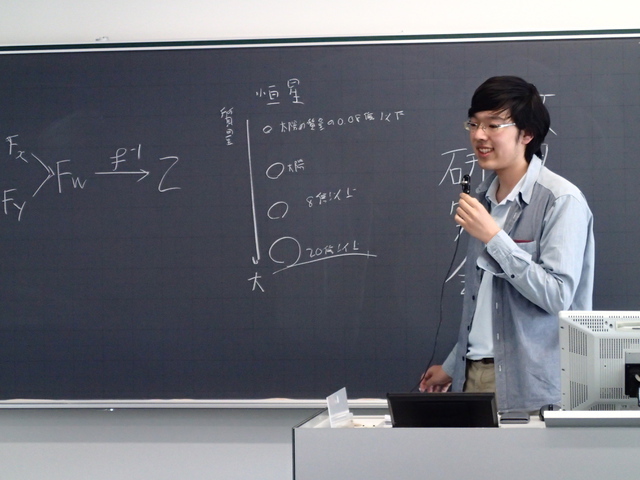 Fx
Fy
Fw
f⁻¹
Z
恒星
質量
太陽の質量の0.08倍以下
太陽
8倍以上
20倍以上
大
研